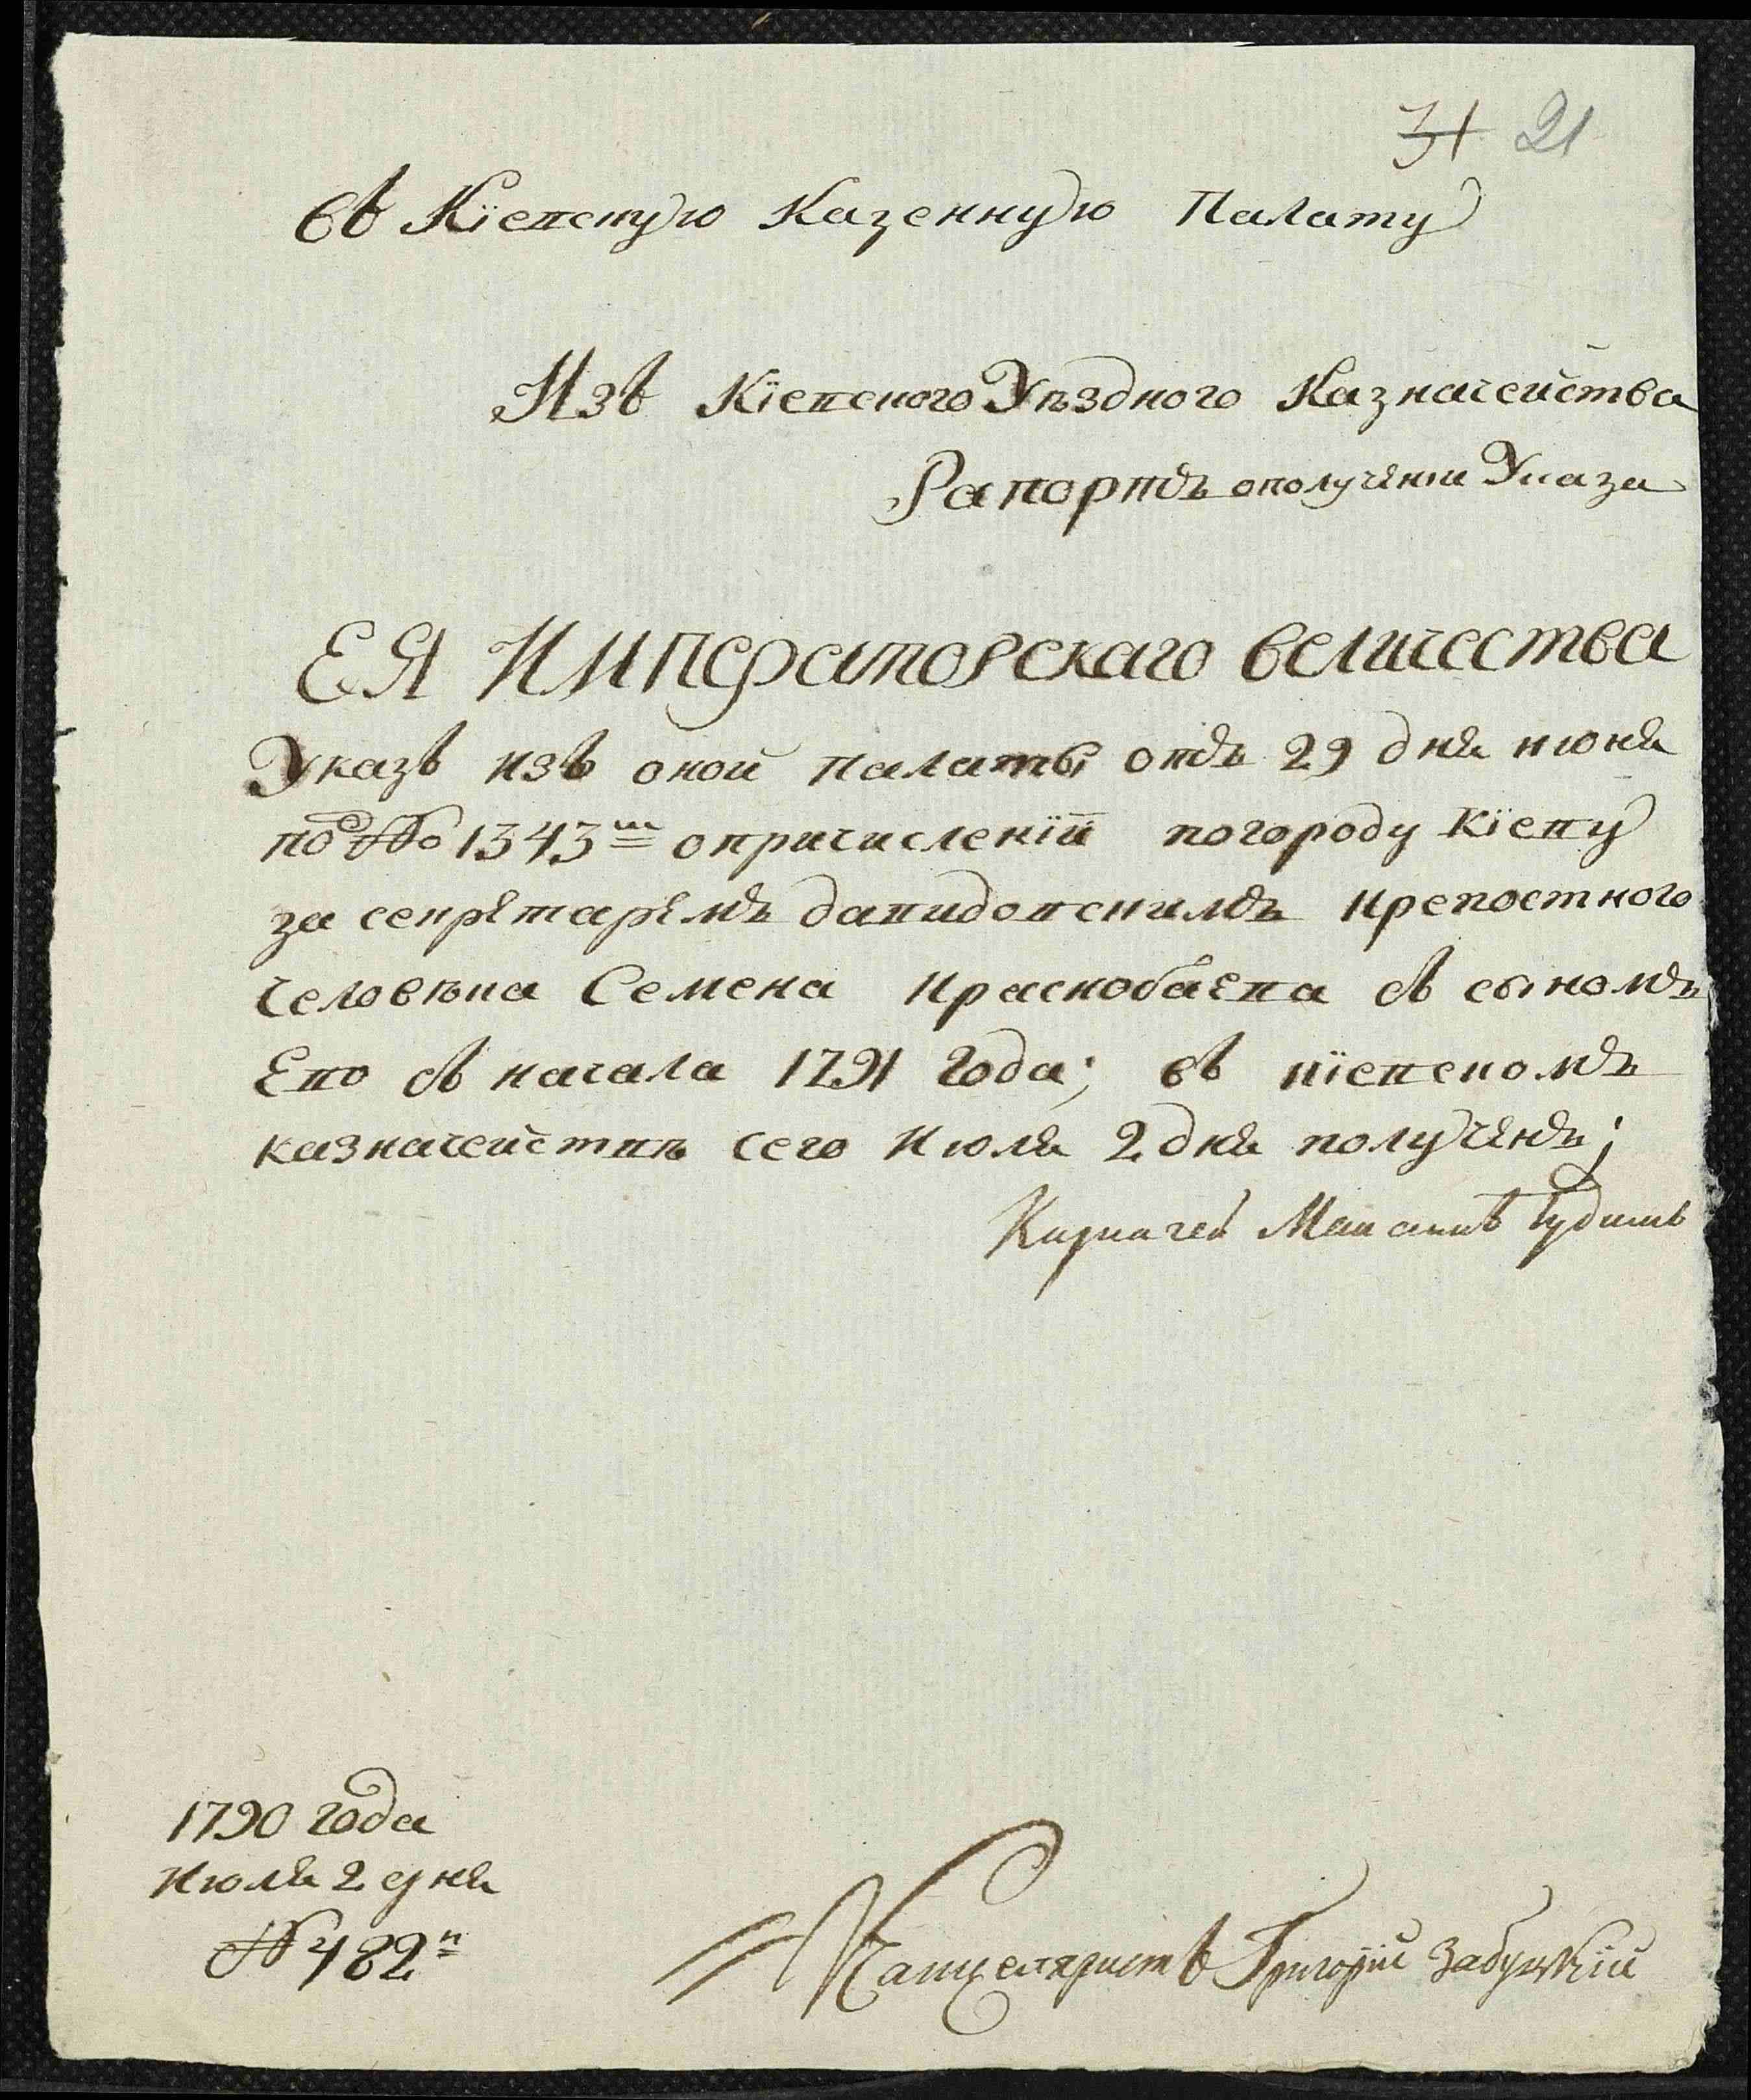 31 21
Въ Кіевскую Казенную Палату
Изъ Кіевского Уѣздного Казначейства
Рапортъ ополученіи Указа
ЕЯ Императорскаго величества
Указъ изъ оной палаты отъ 29 дня июня
под № 1343м опричисленіи погороду Кіеву
за секретаремъ давидовскимъ крепостного
человѣка Семена краснобаева съ сыномъ
Его съ начала 1791 года; въ кіевскомъ
казначействѣ сего Июля 2 дня полученъ;
Казначей
1790 года
Июля 2 дня
№ 482й
Канцеляристъ Григорій